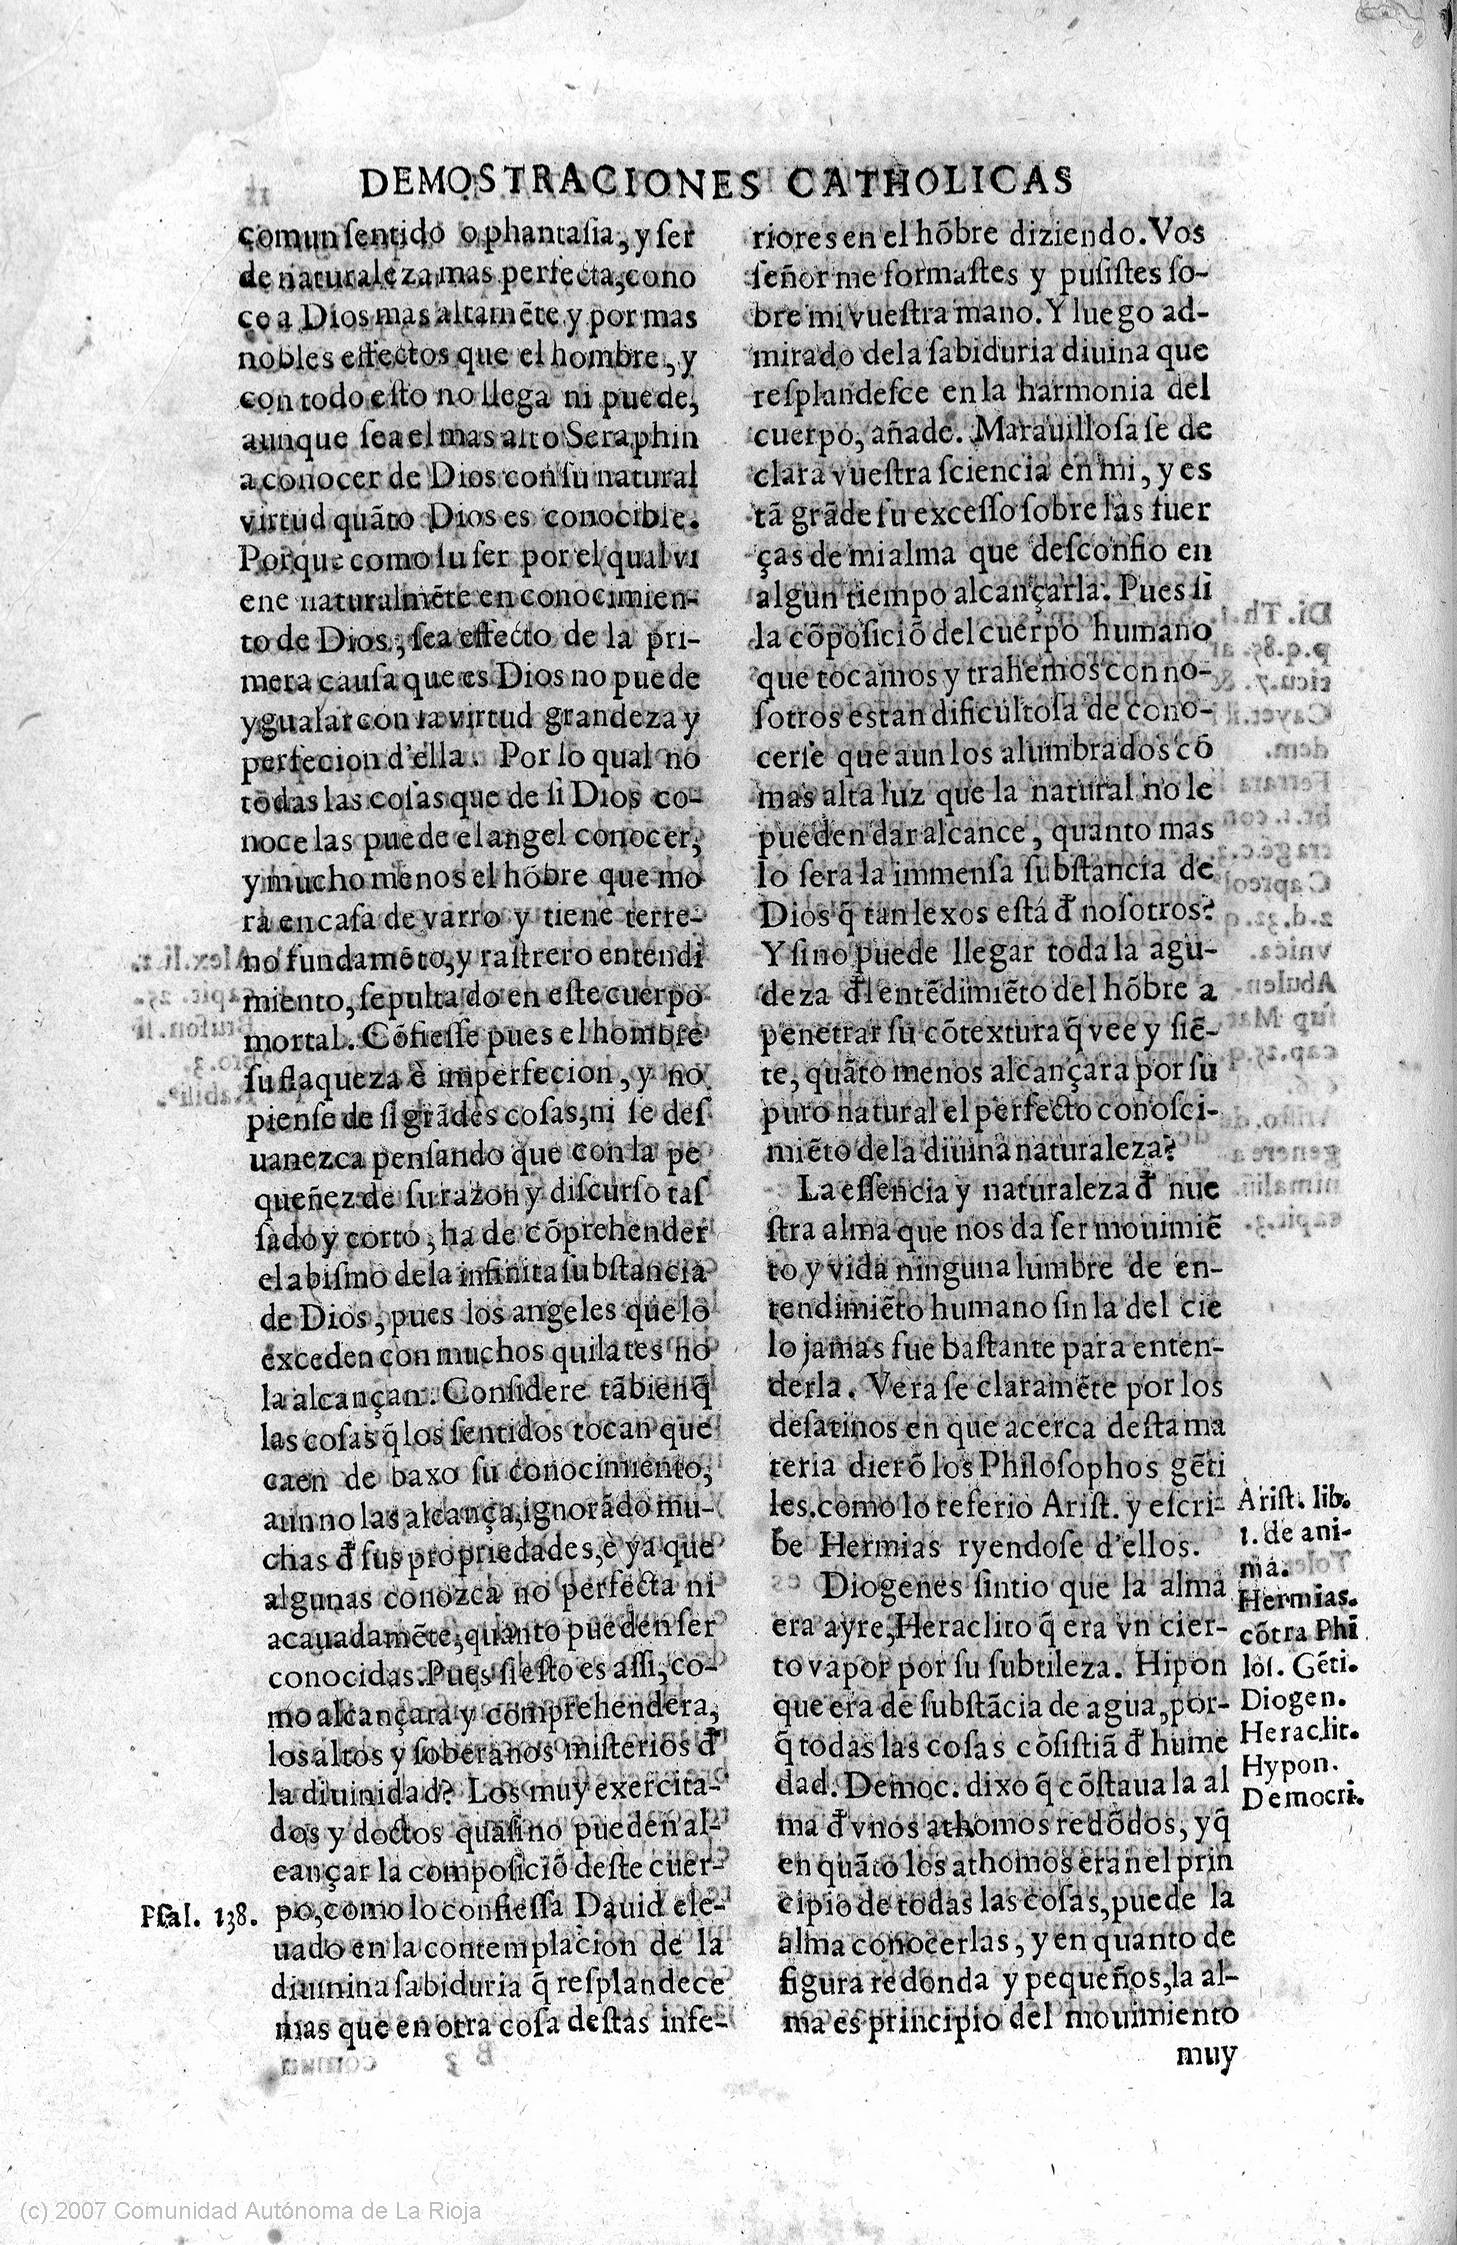 DEMOSTRACIONES CATHOLICAS
comun sentido o phantasia, y ser
de naturaleza mas perfecta, cono
ce a Dios mas altamẽte y por mas
nobles effectos que el hombre, y
con todo esto no llega ni puede,
aunque sea el mas alto Seraphin
a conocer de Dios con su natural
virtud quãto Dios es conocible.
Porque como su ser por el qual vi
ene naturalmẽte en conocimien-
to de Dios, sea effecto de la pri-
mera causa que es Dios no puede
ygualar con la virtud grandeza y
perfecion d'ella. Por lo qual no
todas las cosas que de si Dios co-
noce las puede el angel conocer,
y mucho menos el hõbre que mo
ra en casa de varro y tiene terre-
no fundamẽto, y rastrero entendi
miento, sepultado en este cuerpo
mortal. Cõfiesse pues el hombre
su flaqueza è imperfecion, y no
piense de si grãdes cosas, ni se des
uanezca pensando que con la pe
queñez de su razon y discurso tas
sado y corto, ha de cõprehender
el abismo de la infinita substancia
de Dios, pues los angeles que lo
exceden con muchos quilates no
la alcançan. Considere tãbien q̃
las cosas q̃ los sentidos tocan que
caen de baxo su conocimiento,
aun no las alcança, ignorãdo mu-
chas đ sus propiedades, è ya que
algunas conozca no perfecta ni
acauadamẽte, quanto pueden ser
conocidas. Pues si esto es assi, co-
mo alcançara y comprehendera,
los altos y soberanos misterios đ
la diuinidad? Los muy exercita-
dos y doctos quasi no pueden al-
cançar la composiciõ deste cuer-
Psal. 138. po, como lo confiessa Dauid ele-
uado en la contemplacion de la
diuinina sabiduria q̃ resplandece
mas que en otra cosa destas infe-
riores en el hõbre diziendo. Vos
señor me formastes y pusistes so-
bre mi vuestra mano. Y luego ad-
mirado de la sabiduria diuina que
resplandesce en la harmonia del
cuerpo, añade. Marauillosa se de
clara vuestra sciencia en mi, y es
tã grãde su excesso sobre las fuer
ças de mi alma que desconfio en
algun tiempo alcançarla: Pues si
la cõposiciõ del cuerpo humano
que tocamos y trahemos con no-
sotros es tan dificultosa de cono-
cerse que aun los alumbrados cõ
mas alta luz que la natural no le
pueden dar alcance, quanto mas
lo sera la immensa substancia de
Dios q̃ tan lexos está đ nosotros?
Y si no puede llegar toda la agu-
deza đl entẽdimiẽto del hõbre a
penetrar su cõtextura q̃ vee y siẽ-
te, quãto menos alcançara por su
puro natural el perfecto conosci-
miẽto de la diuina naturaleza?
La essencia y naturaleza đ nue
stra alma que nos da ser mouimiẽ
to y vida ninguna lumbre de en-
tendimiẽto humano sin la del cie
lo jamas fue bastante para enten-
derla. Vera se claramẽte por los
desatinos en que acerca desta ma
teria dierõ los Philosophos gẽti
les. como lo referio Arist. y escri-
be Hermias ryendose d'ellos.
Diogenes sintio que la alma
era ayre, Heraclito q̃ era vn cier-
to vapor por su subtileza. Hipon
que era de substãcia de agua, por-
q̃ todas las cosas cõsistiã đ hume
dad. Democ. dixo q̃ cõstaua la al
ma đ vnos athomos redõdos, y q̃
en quãto los athomos eran el prin
cipio de todas las cosas, puede la
alma conocerlas, y en quanto de
figura redonda y pequeños, la al-
ma es principio del mouimiento
muy
Arist. lib.
1. de ani-
ma.
Hermias.
cõtra Phi
los. Gẽti.
Diogen.
Heraclit.
Hypon.
Democri.
(c) 2007 Comunidad Autónoma de La Rioja